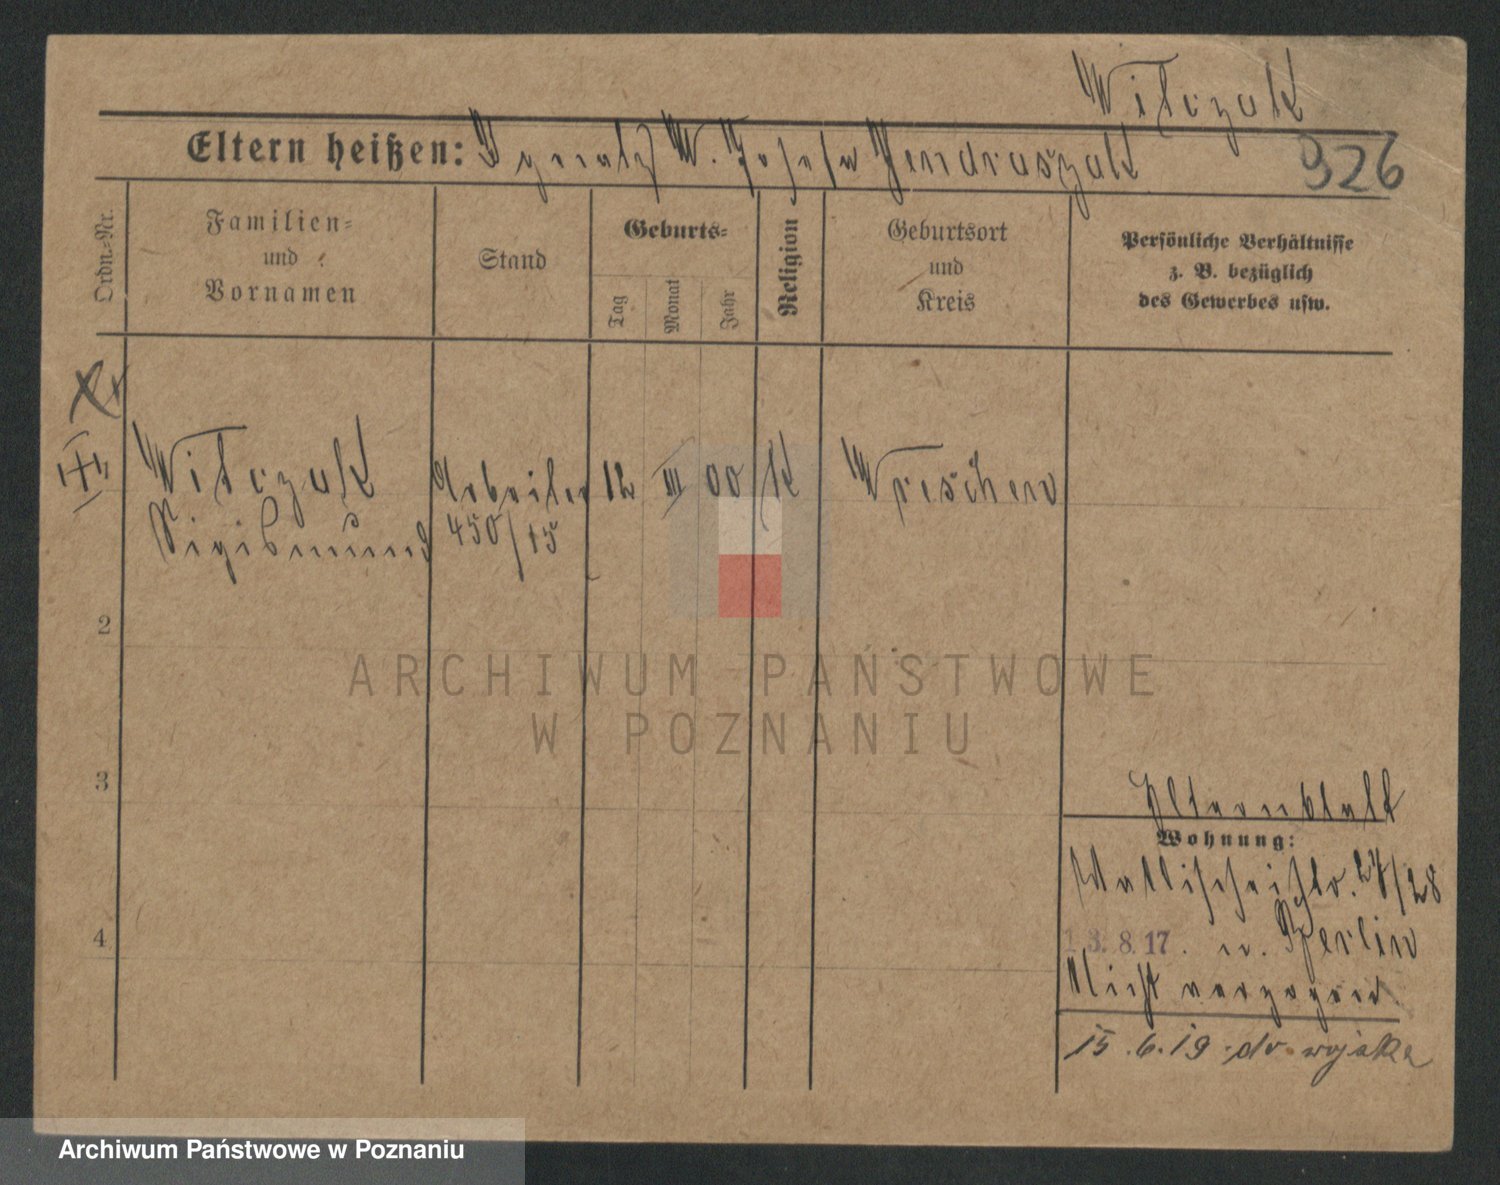 Witczak
Eltern heißen: Ignatz W. Josefa Jendraszak
926
Ordn.=Nr.
Familien=
und
Vornamen
Stand
Geburts=
Tag
Monat
Jahr
Religion
Geburtsort
und
Kreis
Persönliche Verhältnisse
z. B. bezüglich
des Gewerbes usw.
Witczak
Arbeiter
12 III 00 K
Wreschen
Sigismund
450/15
2
3
4
ARCHIWUM PAŃSTWOWE
W POZNANIU
Elternblatt
Wohnung:
Wallischeistr. 27/28
13.8.17. n. Berlin
Nicht verzogen
15.6.19 do wojska
Archiwum Państwowe w Poznaniu